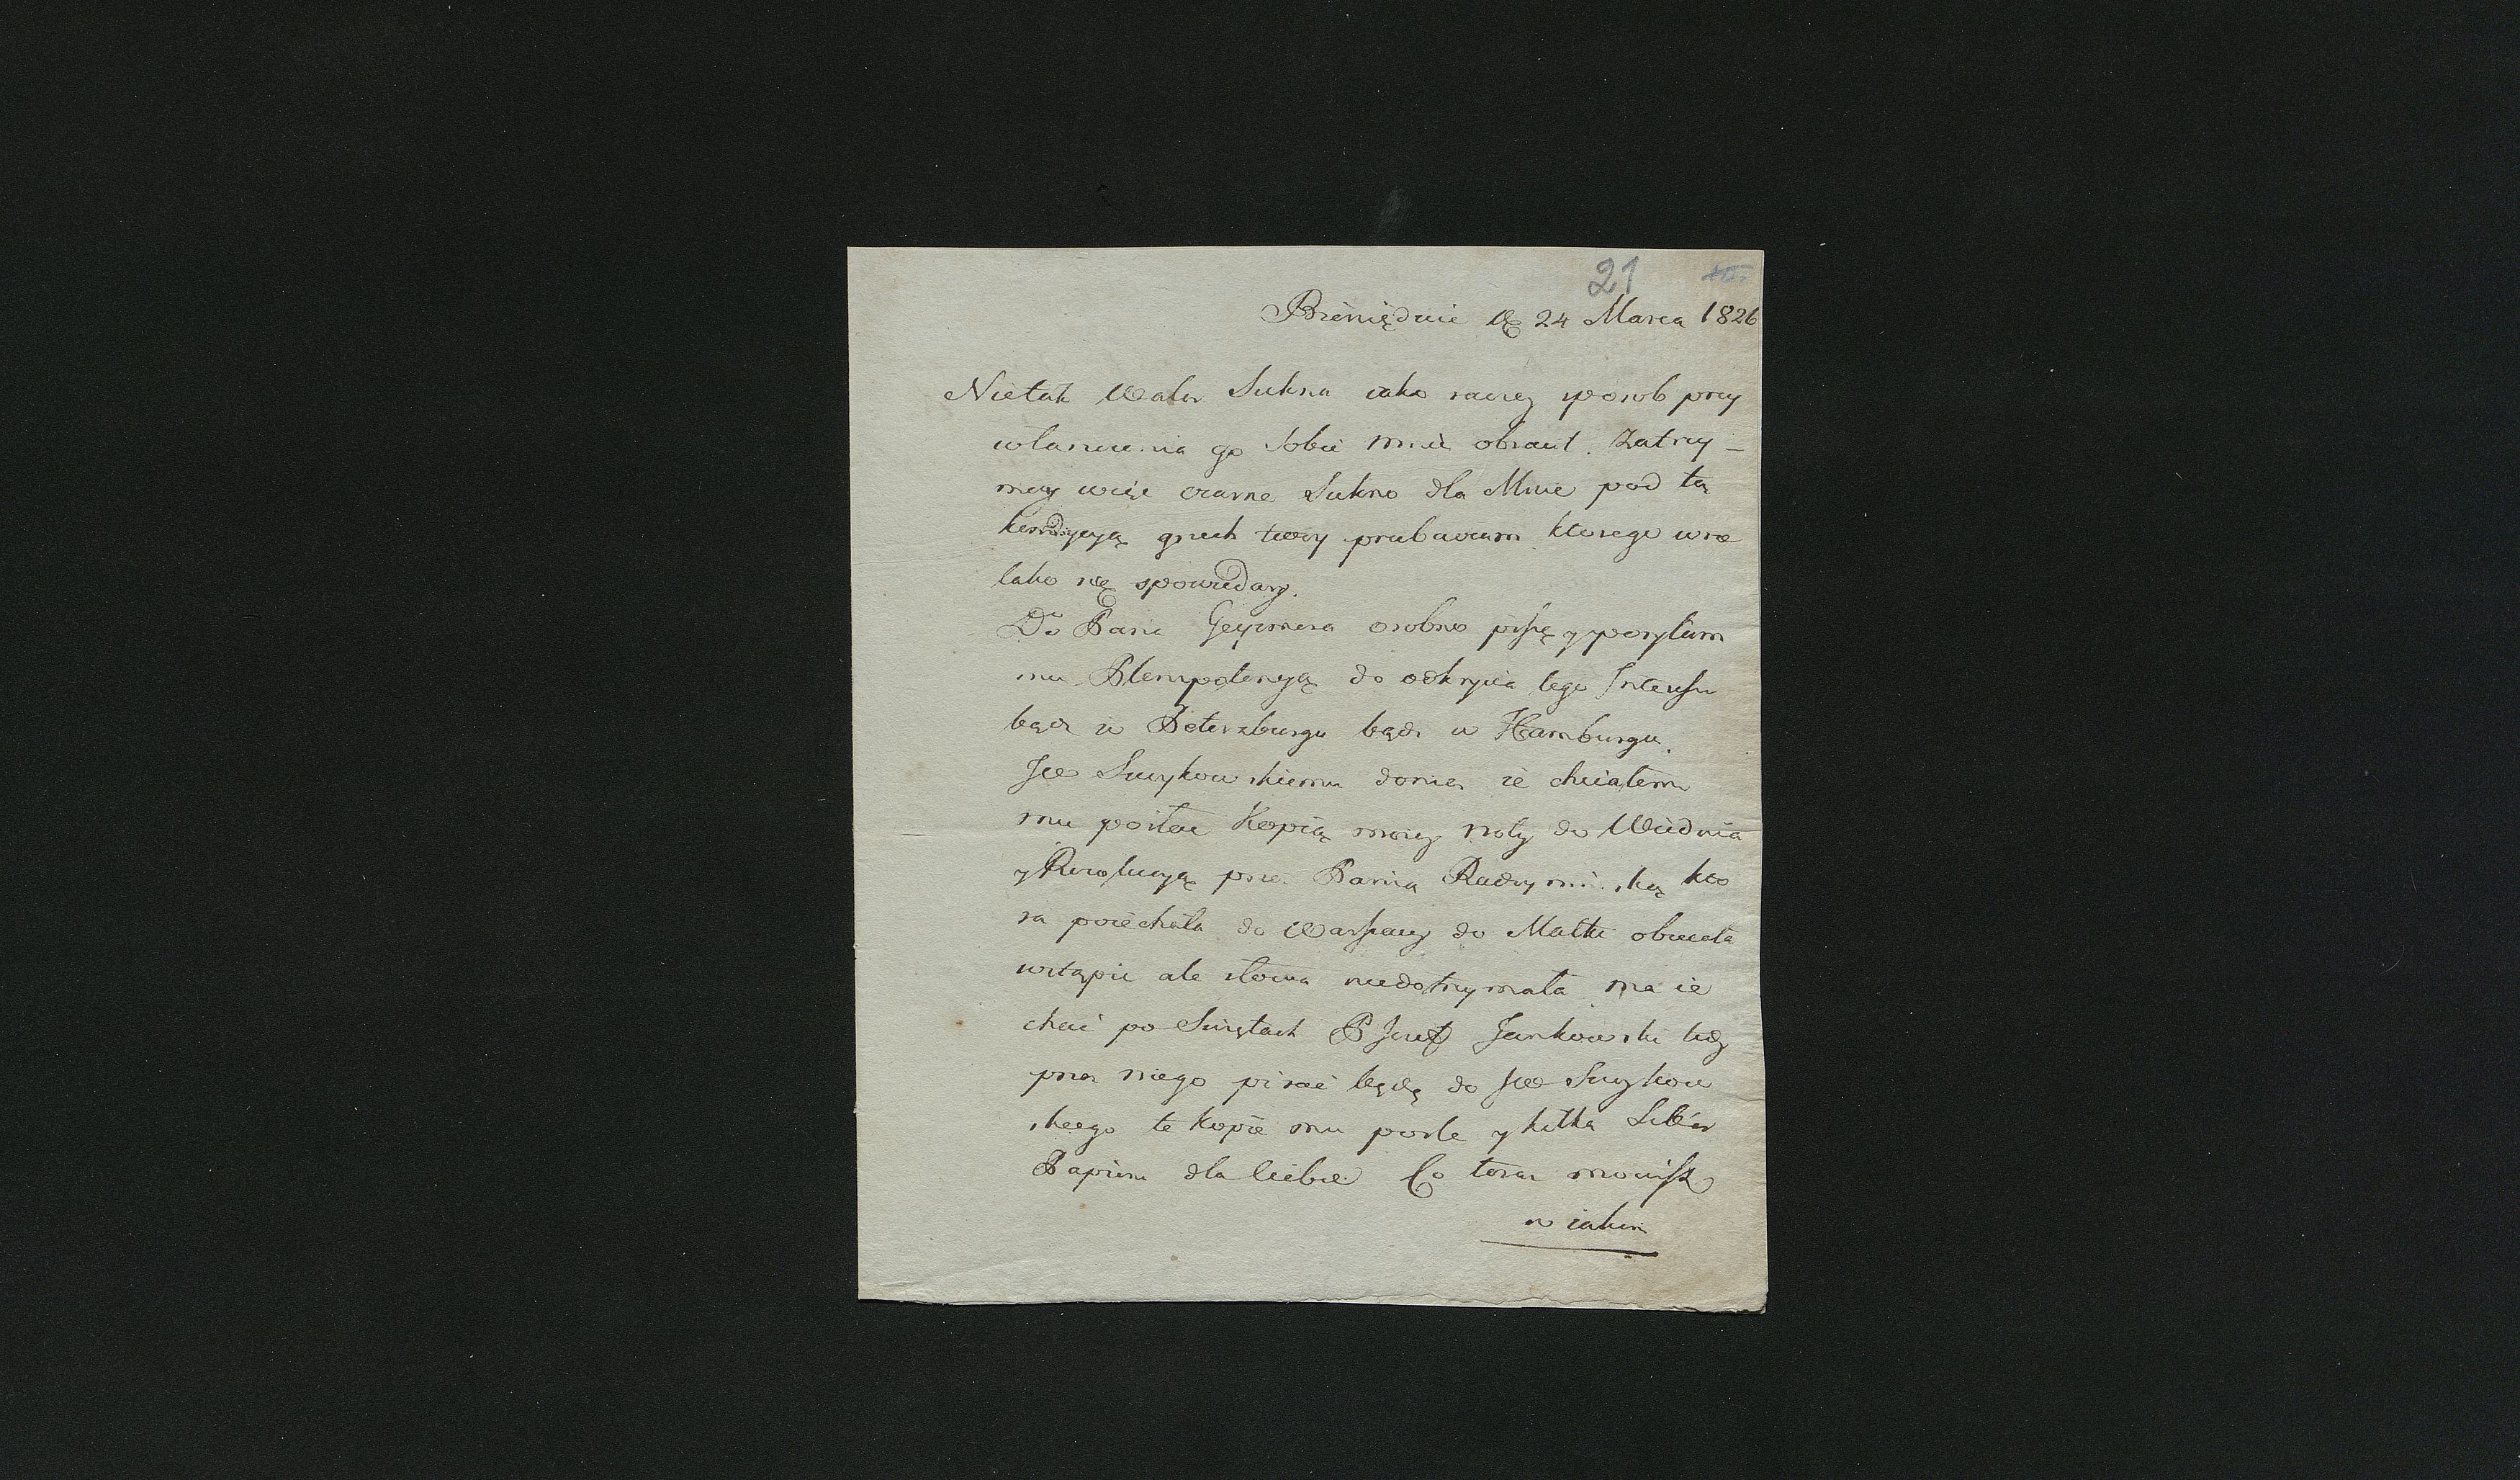 21
Brzemiędnie D. 24 Marca 1826
Nietak Walor Sukna iako raczey sposob przy
wlasczenia go sobie mnie obraził. Zatrzy-
may więc czarne Sukno dla Mnie pod tą
kondycyą grzech twoy przebaczam ktorego wsze
lako się spowieday.
Do Pana Geysmera osobno piszę y posyłam
mu Plenipotencyą do odkrycia tego Interesu
bądz w Peterzburgu bądz w Hamburgu.
JW Suzykowskiemu donies że chciałem
mu posłac Kopią moiey noty do Wiednia
y Rezolucyą przez Panią Radzymińską kto
ra poiechała do Warszawy do Matki obiecała
wstąpic ale słowa niedotrzymała ma ie
chać po Swiętach P Jozef Jankowski tedy
przez niego pisać będę do JW Suzykow
skiego te kopie mu posle y kilka Liber
Papieru dla Ciebie Co teraz mowisz
w iakim